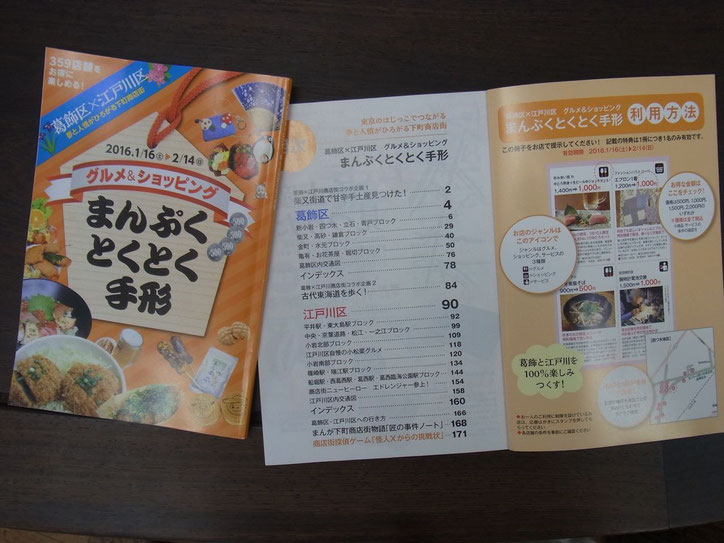 359店舗を
お得に
楽しめる!
葛飾区×江戸川区
夢と人情がひろがる下町商店街
2016.1/16(土)▶2/14(日)
グルメ&ショッピング
まんぷく
とくとく
手形
東京のはじっこでつながる
夢と人情がひろがる下町商店街
葛飾区×江戸川区 グルメ&ショッピング
まんぷくとくとく手形
葛飾×江戸川商店街コラボ企画1
柴又街道で甘辛手土産見つけた! 2
葛飾区 4
新小岩・四つ木・立石・青戸ブロック 6
柴又・高砂・鎌倉ブロック 29
金町・水元ブロック 40
亀有・お花茶屋・堀切ブロック 50
葛飾区内交通図 76
インデックス 78
葛飾×江戸川商店街コラボ企画2
古代東海道を歩く! 84
江戸川区 90
平井駅・東大島駅ブロック 92
中央・京葉道路・松江・一之江ブロック 99
小岩ブロック 109
江戸川区自慢の小松菜グルメ 118
小岩南部ブロック 120
篠崎駅・瑞江駅ブロック 134
船堀駅・西葛西駅・葛西駅・葛西臨海公園駅ブロック 144
商店街ニューヒーロー エドレンジャー参上! 154
江戸川区内交通図 158
インデックス 160
葛飾区・江戸川区への行き方 166
まんが下町商店街物語「匠の事件ノート」 168
商店街探偵ゲーム「怪人Xからの挑戦状」 171
葛飾区×江戸川区 グルメ&ショッピング
まんぷくとくとく手形
利用方法
この冊子をお店で提示してください! 記載の特典は1冊につき1名のみ有効です。
有効期間 2016.1/16(土)▶2/14(日)
お得な金額は
ここをチェック!
お店のジャンルは
このアイコンで
ジャンルはグルメ、
ショッピング、サービスの
3種類
葛飾と江戸川を
100%楽しみ
つくす!